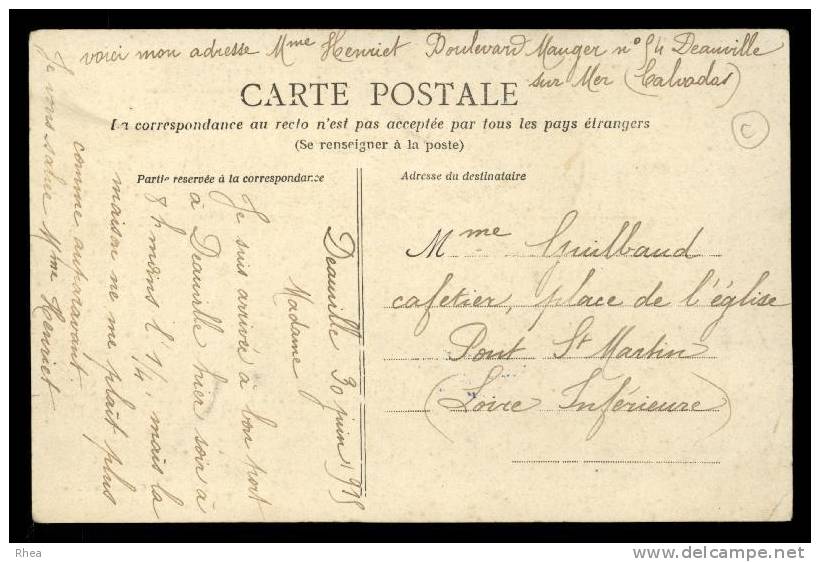 voici mon adresse Mme Henriet Boulevard Mauger n° 54 Deauville
sur Mer (Calvados)
CARTE POSTALE
La correspondance au recto n'est pas acceptée par tous les pays étrangers
(Se renseigner à la poste)
C
Partie reservée à la correspondance
Adresse du destinataire
Deauville 30 juin 1915
Madame
Je suis arrivée à bon port
à Deauville hier soir à
8 h moins l' 1/4, mais la
maison ne me plaît plus
comme auparavant
Je vous salue Mme Henriet
Mme Guilbaud
cafetier, place de l'église
Pont St Martin
(Loire Inférieure)
Rhea
www.delcampe.net